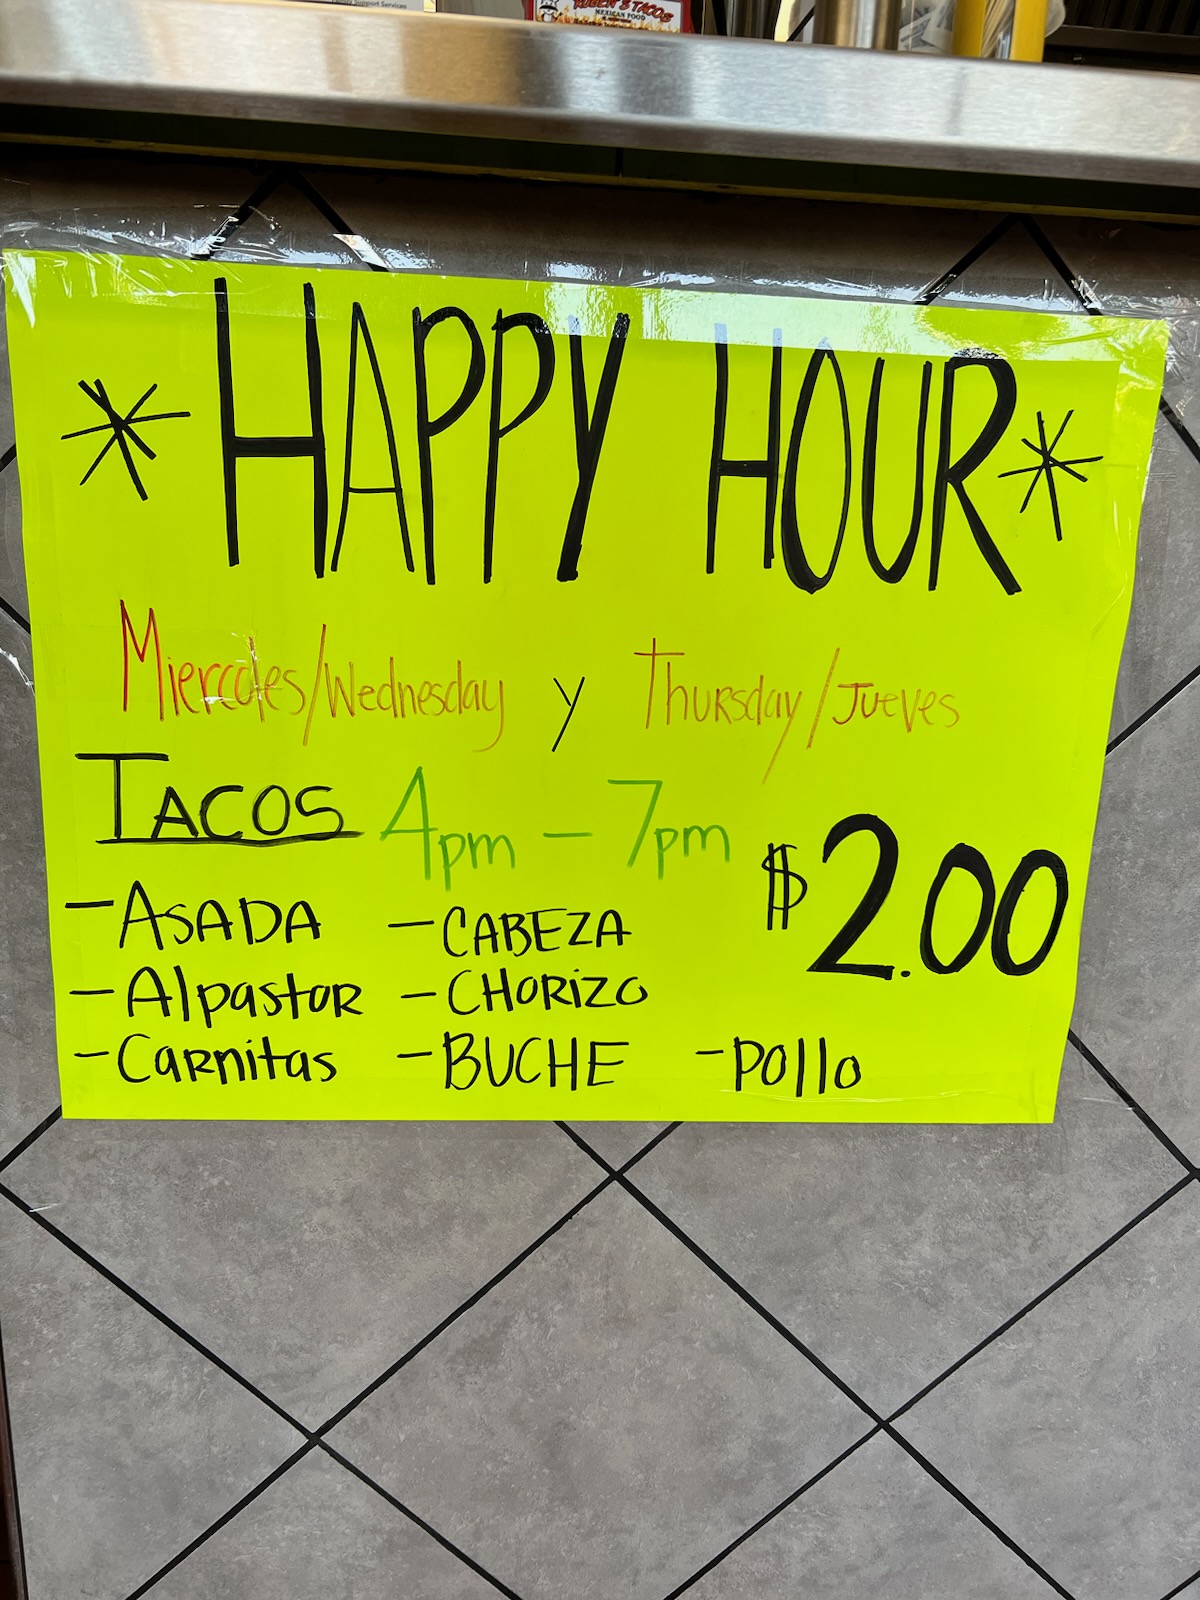 Support Services
RUBEN'S TACOS
MEXICAN FOOD
* HAPPY HOUR *
Miercoles/Wednesday y Thursday/Jueves
TACOS 4pm - 7pm
$2.00
- ASADA - CABEZA
- Alpastor - CHORIZO
- Carnitas - BUCHE - pollo